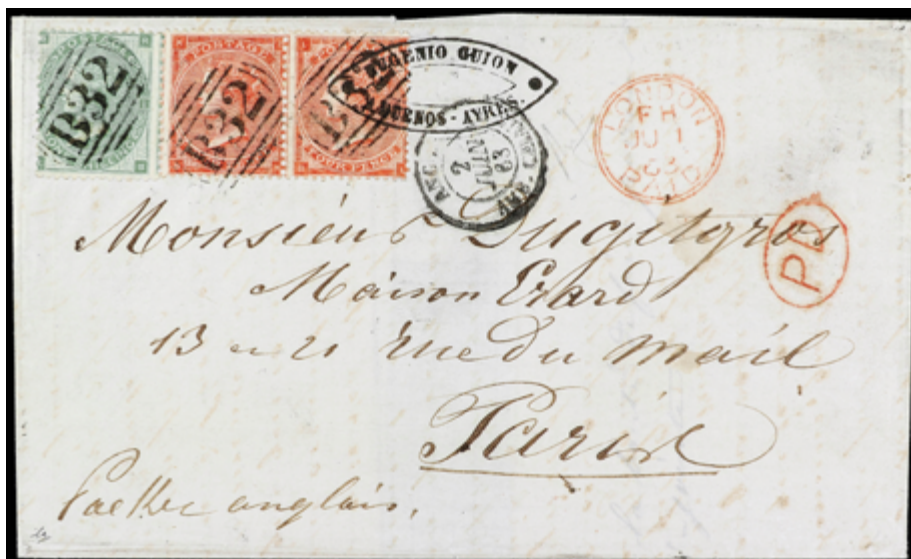 B32
POSTAGE
B32
B32
FOUR PENCE
EUGENIO GUION
BUENOS-AYRES.
2 JUIN 63
LONDON
FH
JU 1
63
PAID
PD
Monsieur Dugitgros
Maison Erard
13 a 21 rue du mail
Paris
Packet anglais.